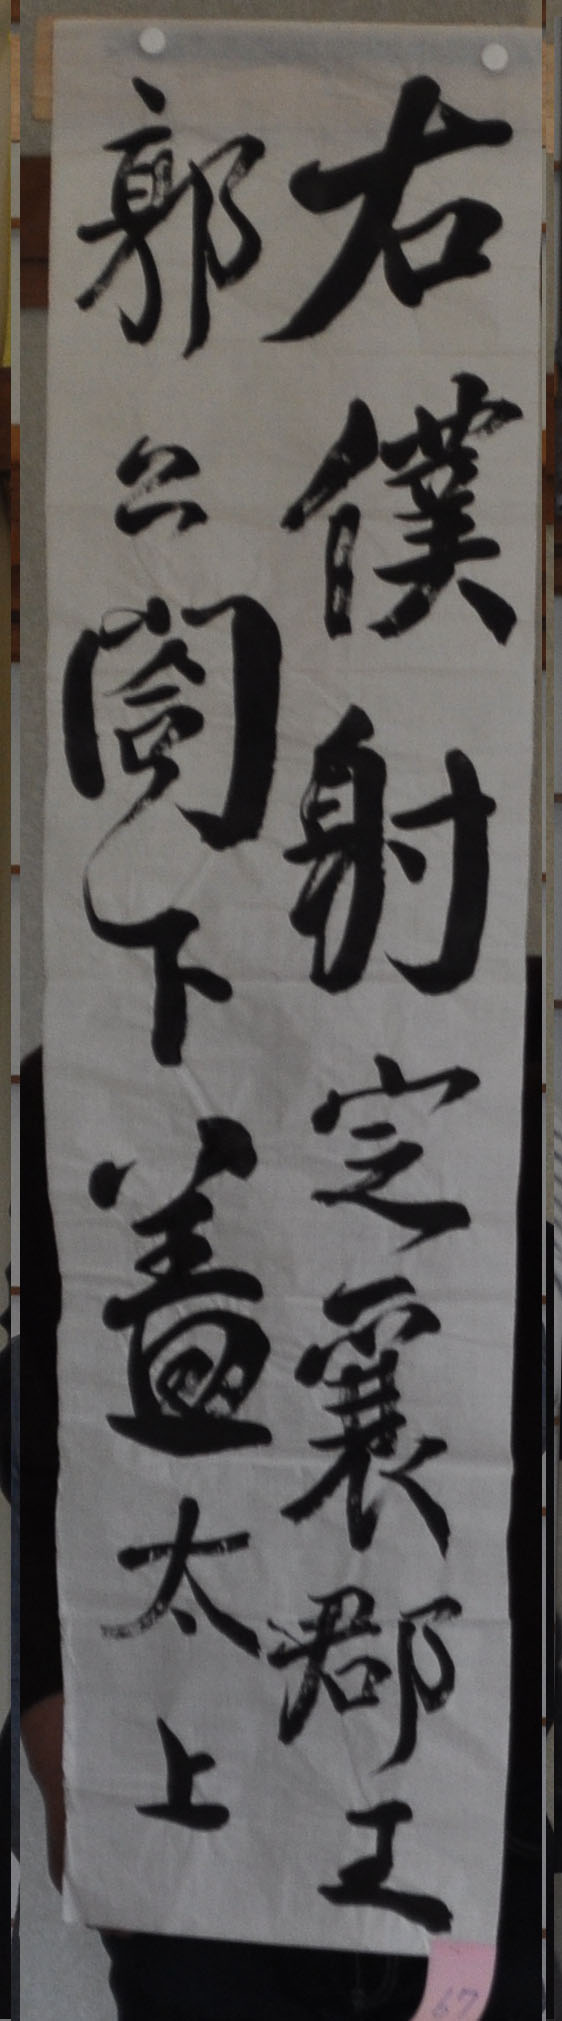 右僕射定襄郡王
郭公閤下蓋太上
67